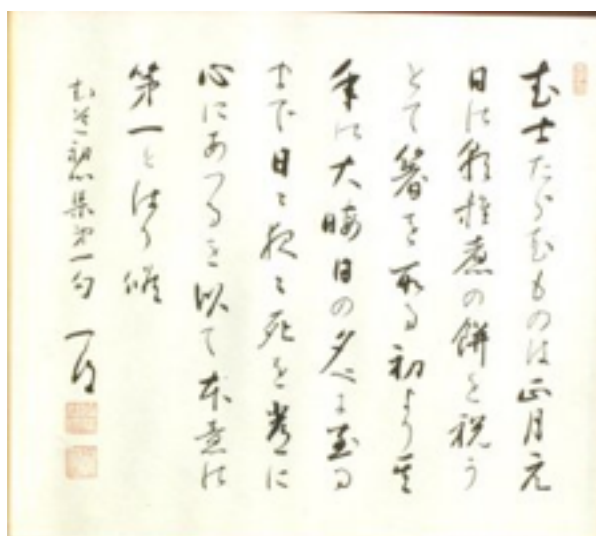 武士たらむものは正月元
日の朝雑煮の餅を祝う
とて箸を取る初より其
年の大晦日の夕べに至る
まで日々夜々死を常に
心にあつるを以て本意の
第一と仕り候
武道初心集第一句